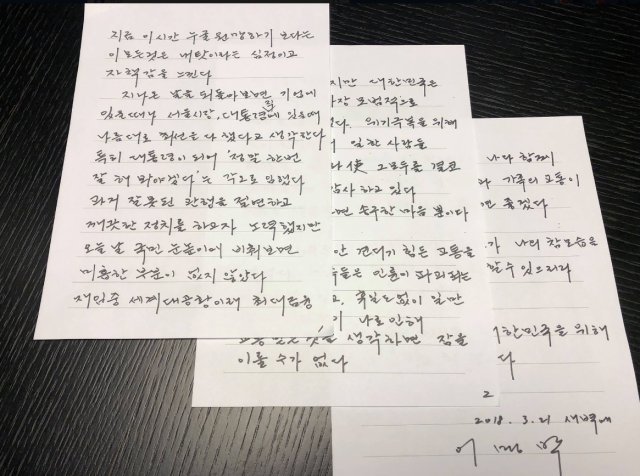 지금 이 시간 누굴 원망하기 보다는
이 모든것은 내탓이라는 심정이고
자책감을 느낀다
지나온 날을 되돌아보면 기업에
있을때나 서울시장, 대통령직에 있을때
나름대로 최선을 다했다고 생각한다
특히 대통령이 되어 '정말 한번
잘 해 봐야겠다'는 각오로 임했다
과거 잘못된 관행을 절연하고
깨끗한 정치를 하고자 노력했지만
오늘날 국민 눈높이에 비춰보면
미흡한 부분이 없지 않았다
재임중 세계대공황이래 최대금융
1
지만 대한민국은
가장 모범적으로
다. 위기극복을 위해
이 일한 사람들
使 그 모두를 결코
감사하고 있다
면 송구한 마음 뿐이다
안 견디기 힘든 고통을
들은 인륜이 파괴되는
고, 휴일도 없이 일만
이 나로 인해
고통받는것을 생각하면 잠을
이룰 수가 없다
2
나와 함께
가족의 고통이
면 좋겠다
가 나의 참모습을
할 수 있으리라
대한민국을 위해
다
2018. 3. 21 새벽에
이명박